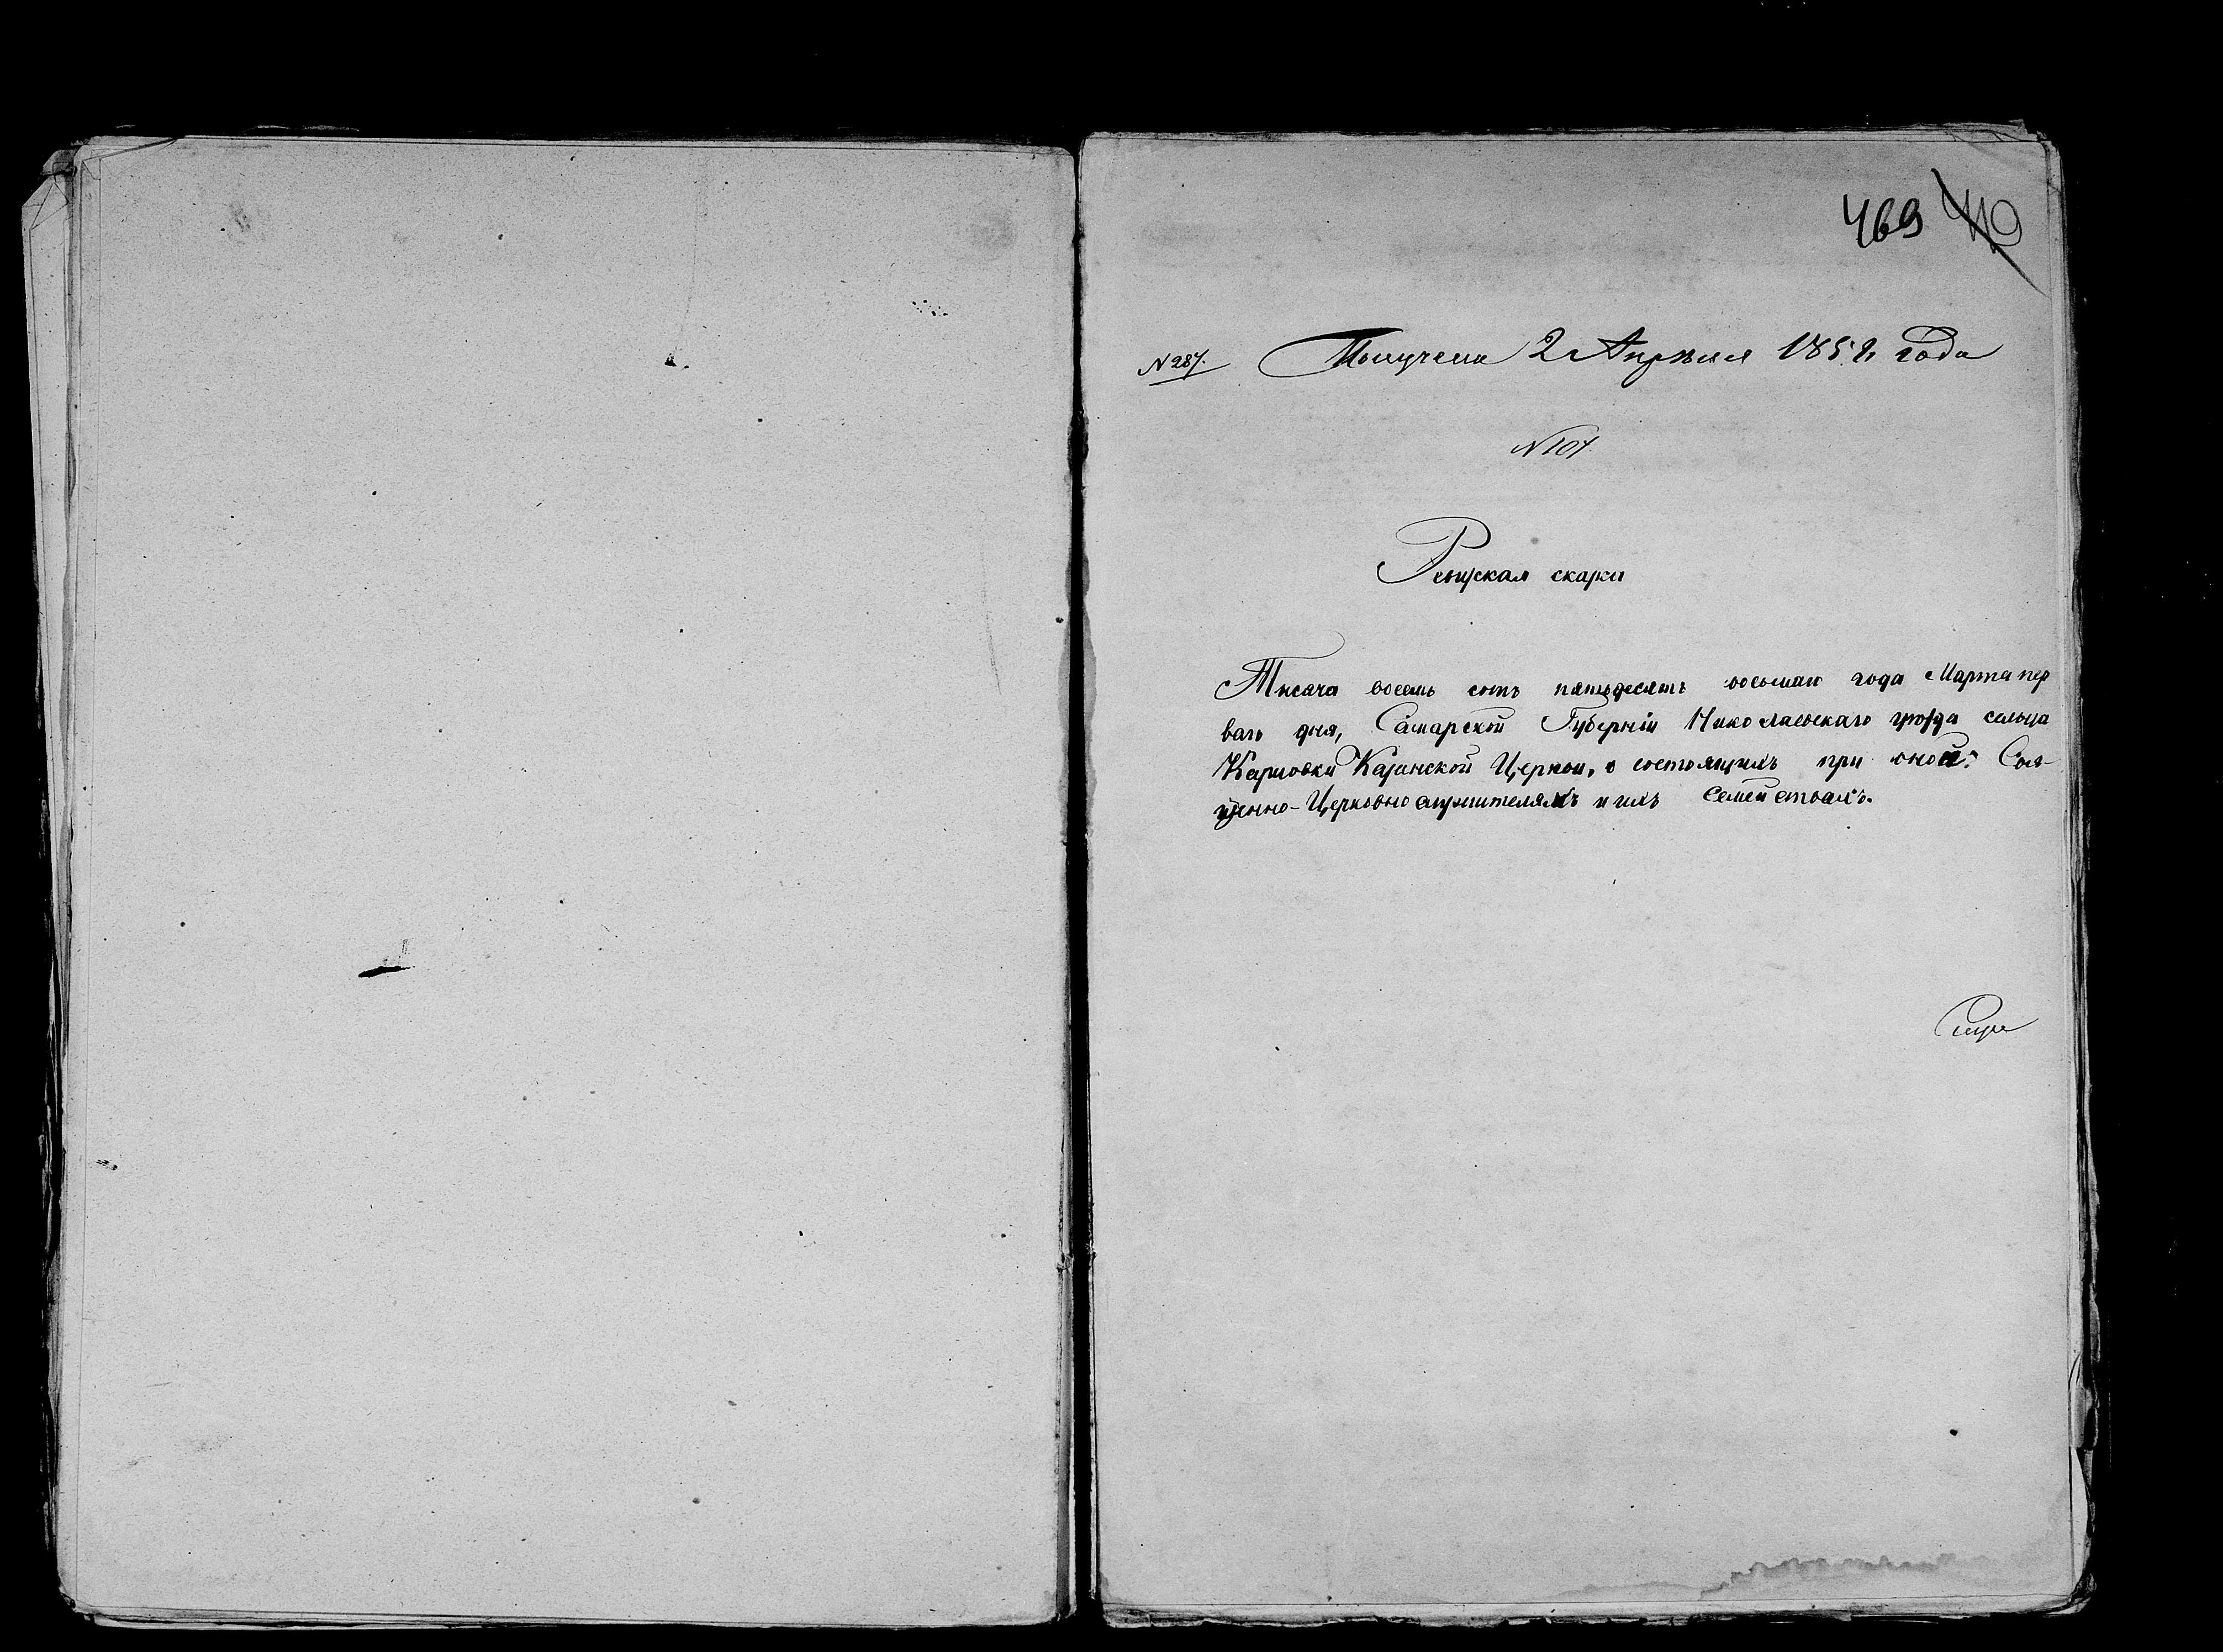 469 410
N 287. Получена 2 Апреля 1858 года
N 107
Ревизская сказка
Тысяча восемь сотъ пятьдесятъ восьмаго года Марта пер
ваго дня, Самарской Губерніи Николаевскаго уезда сельца
Карловки Казанской Церкви, о состоящихъ при оной: Свя-
щенно-Церковнослужителяхъ и ихъ семействахъ.